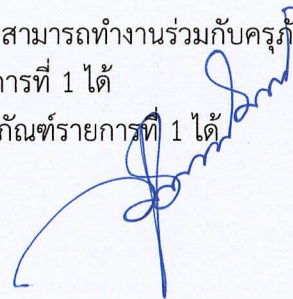 สามารถทำงานร่วมกับครุภั
ารที่ 1 ได้
ภัณฑ์รายการที่ 1 ได้